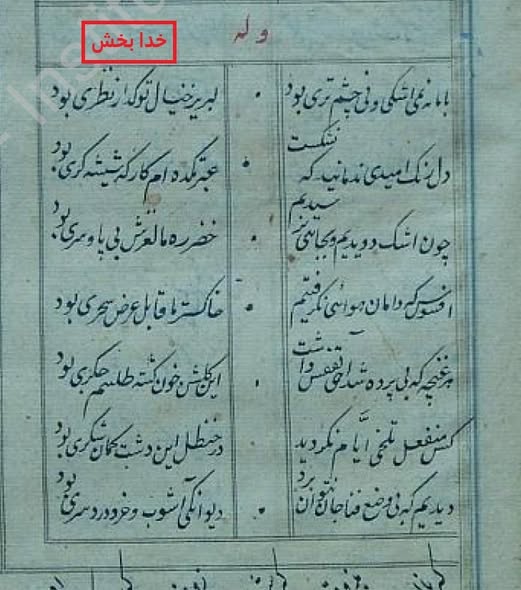 وله
خدا بخش
با ما نه نمی اشکی و نی چشم تری بود لبریز خیال تو گداز نظری بود
دل رنگ امیدی ندمانید که نشکست عبرتکده ام کارگه شیشه گری بود
چون اشک دویدیم و بجایی نرسیدیم خضر ره ما لغزش بی پا و سری بود
افسوس که دامان هوائی نگرفتیم خاکستر ما قابل عرض سحری بود
هر غنچه که بی پرده شد آخر قفسی داشت این گلشن خون گشته طلسم جگری بود
کس منفعل تلخی ایام نگردید در حنظل این دشت گمان شکری بود
دیدیم که بی وضع فنا جان نتوان برد دیوانگی آشوب و خرد دردسری بود